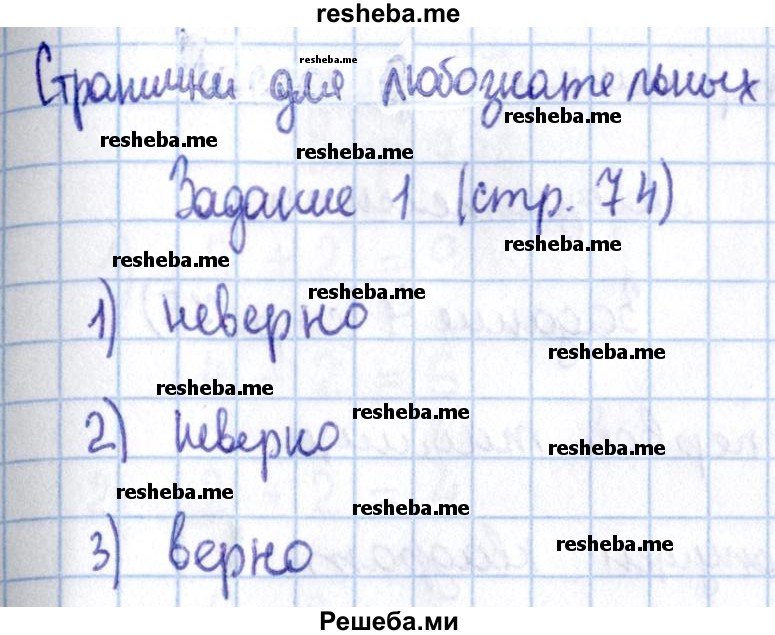 resheba.me
Странички для любознательных
resheba.me
resheba.me
resheba.me
resheba.me
Задание 1 (стр. 74)
resheba.me
resheba.me
resheba.me
1) неверно
resheba.me
resheba.me
resheba.me
2) неверно
resheba.me
resheba.me
resheba.me
3) верно
resheba.me
Решеба.ми